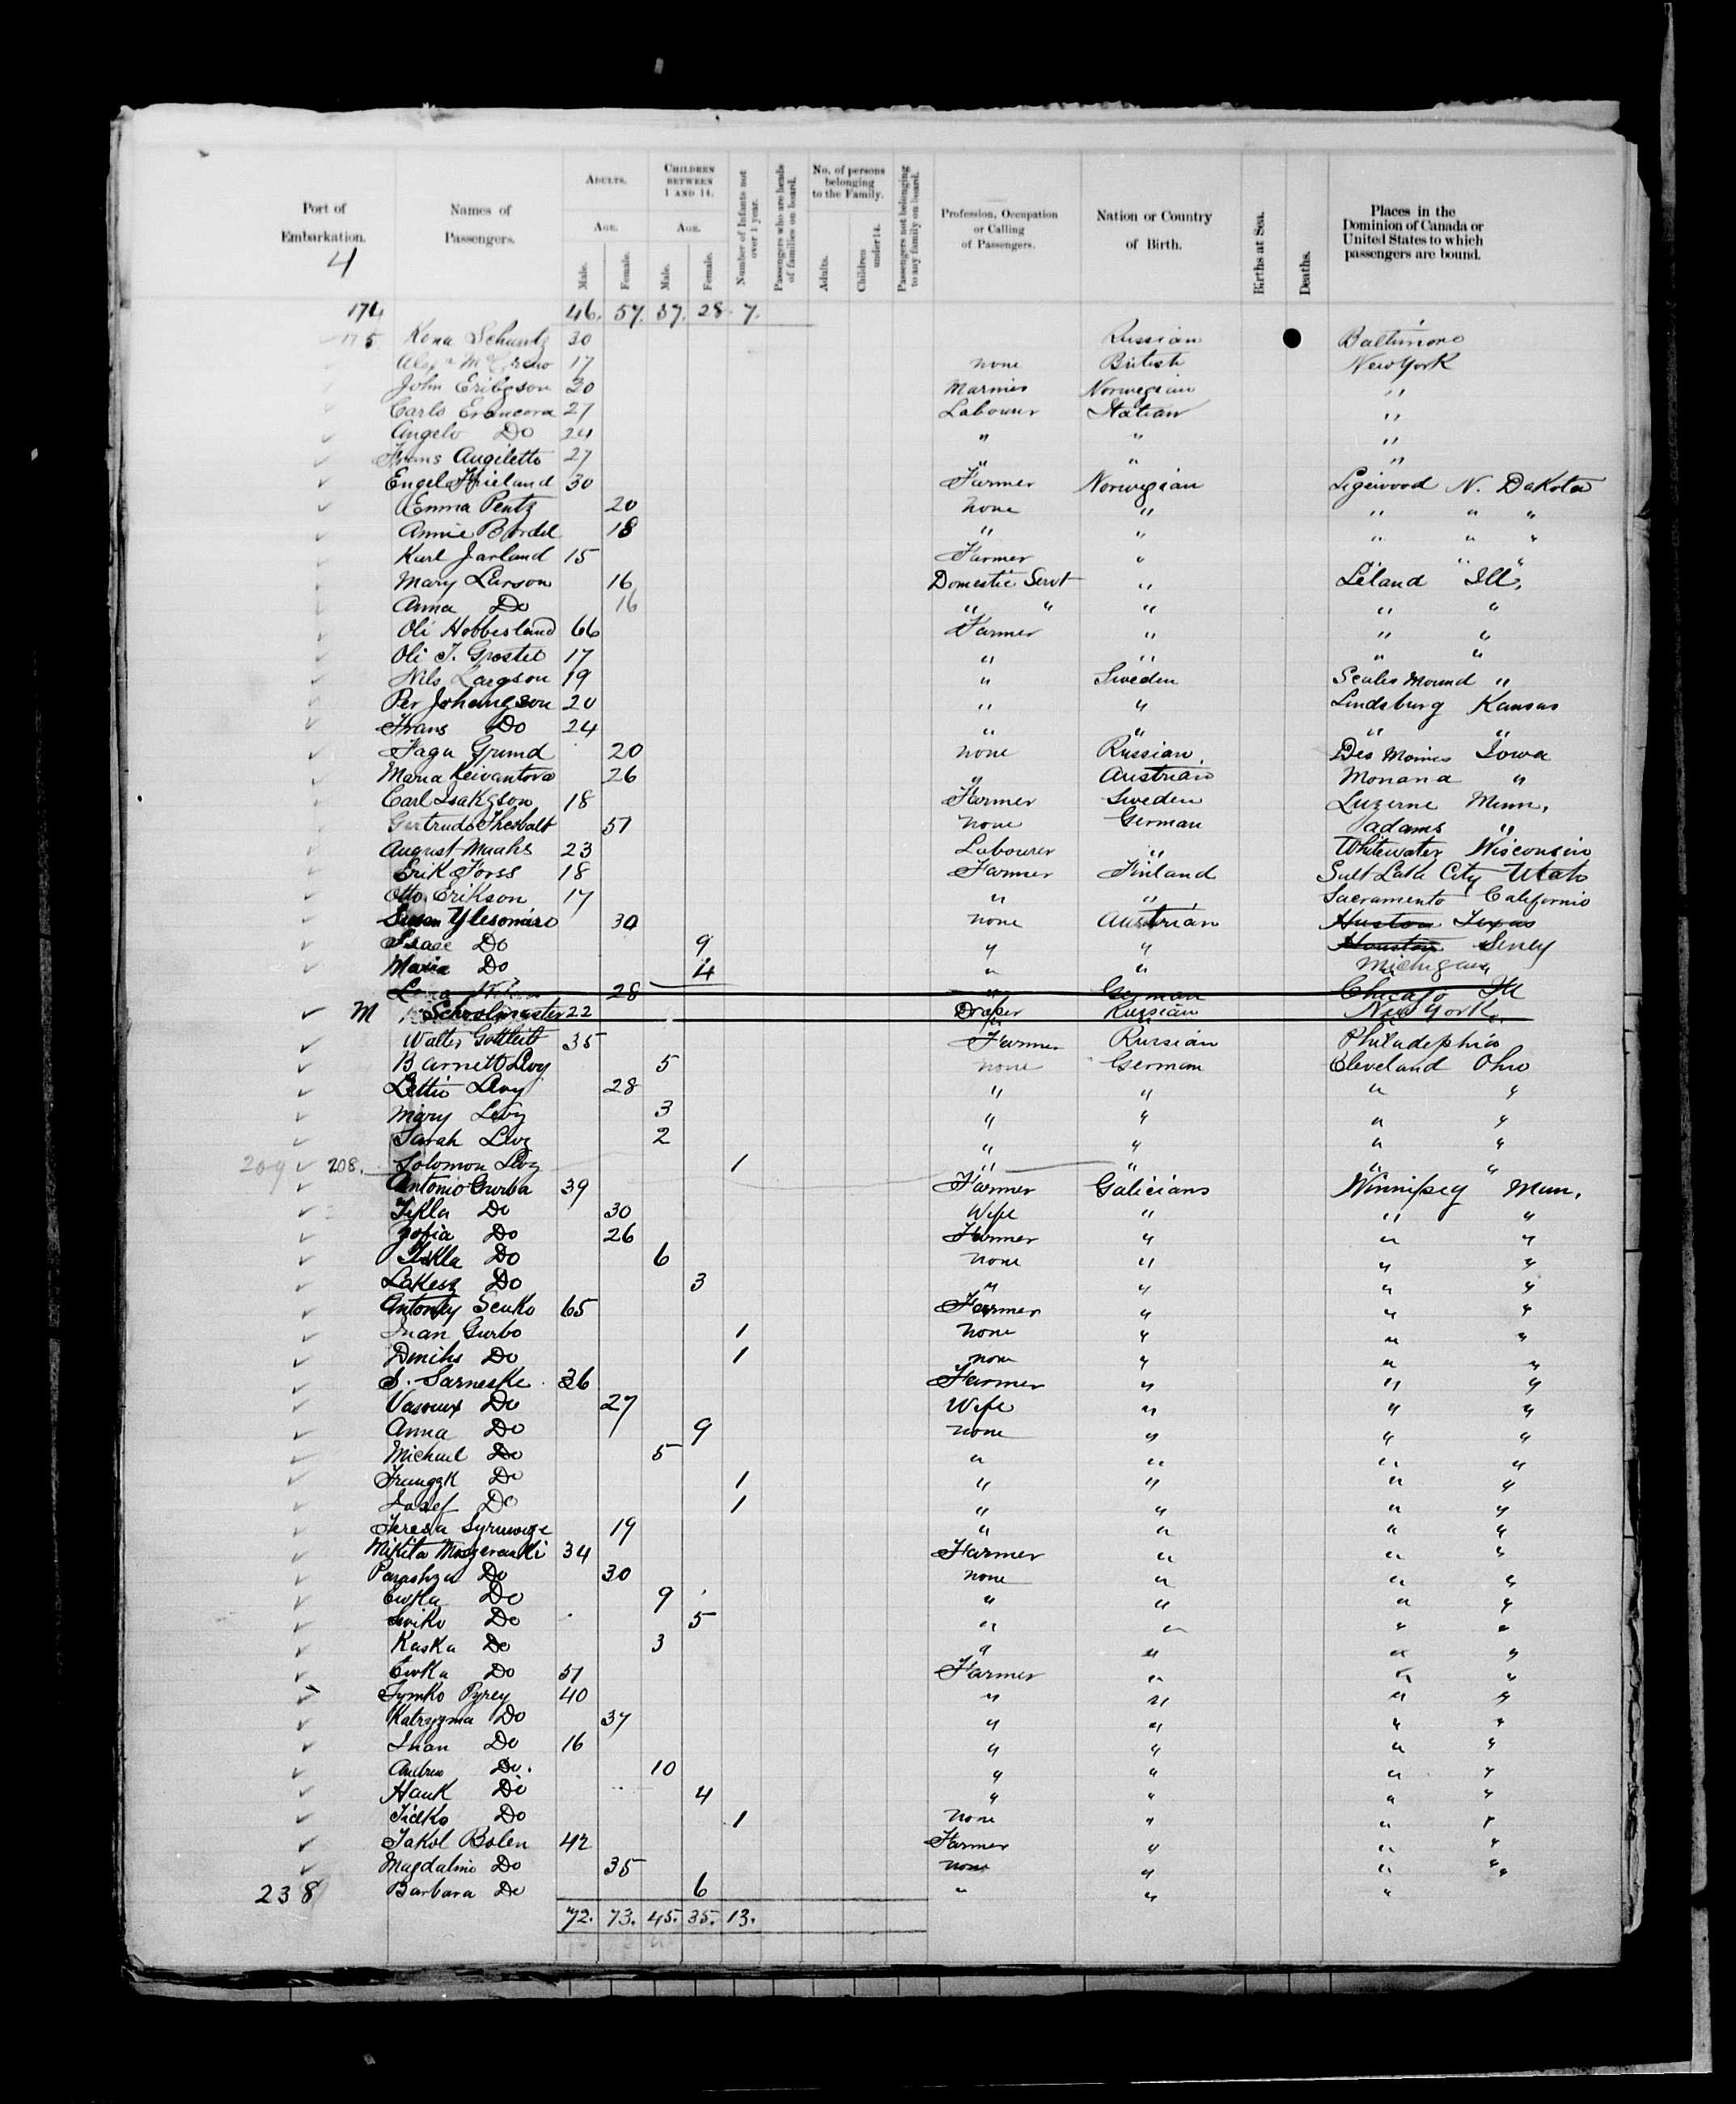 Port of Embarkation. Names of Passengers. Adults. Age. Male. Female. Children between 1 and 14. Age. Male. Female. Number of Infants not over 1 year. Passengers who are heads of families on board. No. of persons belonging to the Family. Adults. Children under 14. Passengers not belonging to any family on board. Profession, Occupation or Calling of Passengers. Nation or Country of Birth. Births at Sea. Deaths. Places in the Dominion of Canada or United States to which passengers are bound.
4
174 46. 57. 37. 28. 7.
175 Kena Schuntz 30 Russian Baltimore
17 none British New York
John Erikson 30 Marnier Norwegian "
Carlo 27 Labourer Italian "
Angelo Do 24 " " "
Frans Augiletto 27 " " "
Engel Frieland 30 Farmer Norwegian N. Dakota
Emma Pentz 20 none " " " "
Annie 18 " " " " "
Karl Jarland 15 Farmer " " "
Mary Larson 16 Domestic Servt " Leland Ill,
Anna Do 16 " " " " "
Oli Hobbesland 66 Farmer " " "
Oli T. Grostet 17 " " " "
Nils Largson 19 " Sweden Scales Mound "
Per Johangson 20 " " Lindsburg Kansas
Frans Do 24 " " " "
Faga Grund 20 none Russian Des Moines Iowa
Maria Keivantova 26 " Austrian Monana "
Carl Isakgson 18 Farmer Sweden Luzerne Minn,
Gertrude Theobalt 51 none German adams "
August Maahs 23 Labourer " Whitewater Wisconsin
Erik Forss 18 Farmer Finland Salt Lake City Utah
Otto Erikson 17 " " Sacramento California
Susan Ylesomiro 30 none Austrian Huston Texas
Isaac Do 9 " " Houston Seney
Maria Do 4 " " Michigan
28 " German Chicago Ill
M Schoolmaster 22 Draper Russian New York
Walter Gottleib 35 Farmer Russian Philadephia
Barnett Levy 5 none German Cleveland Ohio
Lettie Levy 28 " " " "
Mary Levy 3 " " " "
Sarah Levy 2 " " " "
209 208. Solomon Levy 1 " " " "
Antonio Gurba 39 Farmer Galicians Winnipeg Man.
Tekla Do 30 Wife " " "
Zofia Do 26 Farmer " " "
Tekla Do 6 none " " "
Lakesz Do 3 " " " "
Antonty Senko 65 Farmer " " "
Iuan Gurbo 1 none " " "
Dmihs Do 1 none " " "
S. Sarneske 36 Farmer " " "
Do 27 Wife " " "
Anna Do 9 none " " "
Michael Do 5 " " " "
Do 1 " " " "
Josef Do 1 " " " "
Teresa 19 " " " "
Mikita 34 Farmer " " "
Do 30 none " " "
Ewka Do 9 " " " "
Do 5 " " " "
Kaska Do 3 " " " "
Ewka Do 51 Farmer " " "
Tymko Pyrey 40 " " " "
Katryzma Do 37 " " " "
Iuan Do 16 " " " "
Andrew Do. 10 " " " "
Hauk Do 4 " " " "
Fidko Do 1 none " " "
Jakol Bolen 42 Farmer " " "
Magdalino Do 35 none " " "
238 Barbara Do 6 " " "
72. 73. 45. 35. 13.